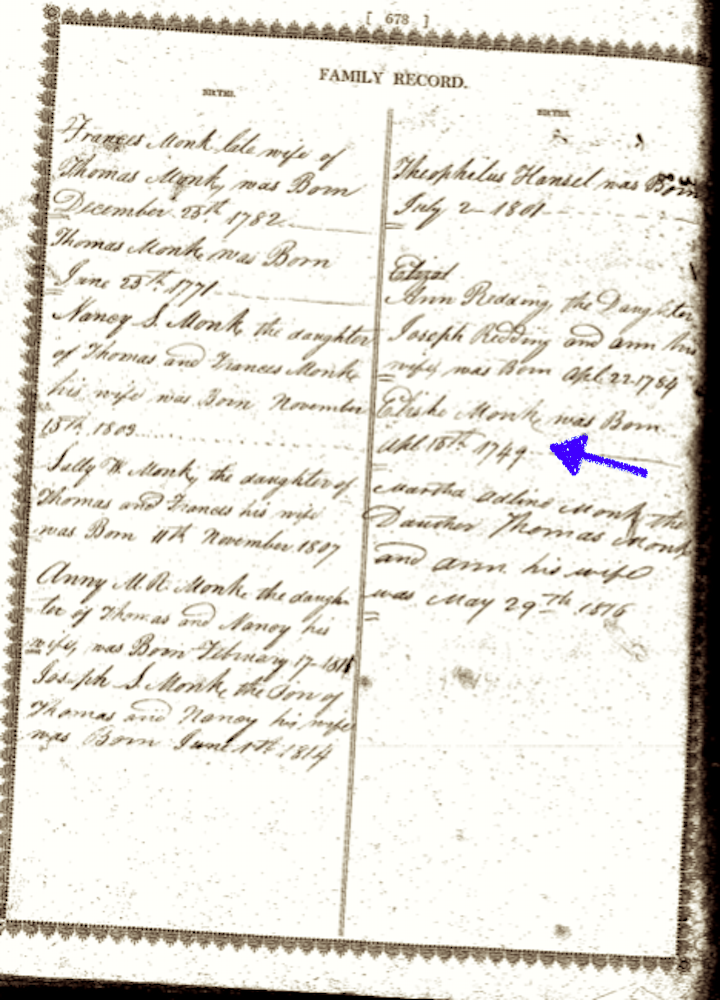 [ 678 ]
FAMILY RECORD.
BIRTHS.
Frances Monk late wife of
Thomas Monk, was Born
December 25th 1782
Thomas Monk was Born
June 25th 1771
Nancy S. Monk the daughter
of Thomas and Frances Monk
his wife was Born November
15th 1803
Sally W. Monk, the daughter of
Thomas and Frances his wife
was Born 11th November 1807
Anny M.R. Monk the daugh-
ter of Thomas and Nancy his
wife, was Born February 17
Joseph S. Monk the Son of
Thomas and Nancy his wife
was Born June 1814
BIRTHS.
Theophilus Hansel was Born
July 2 1801
Ann Redding, the Daughter
Joseph Redding and ann his
wife was Born Apl 22 1784
Monk was Born
Apl 18th 1749
Martha Adline Monk the
Dauther Thomas Monk
and ann his wife
was May 29th 1816